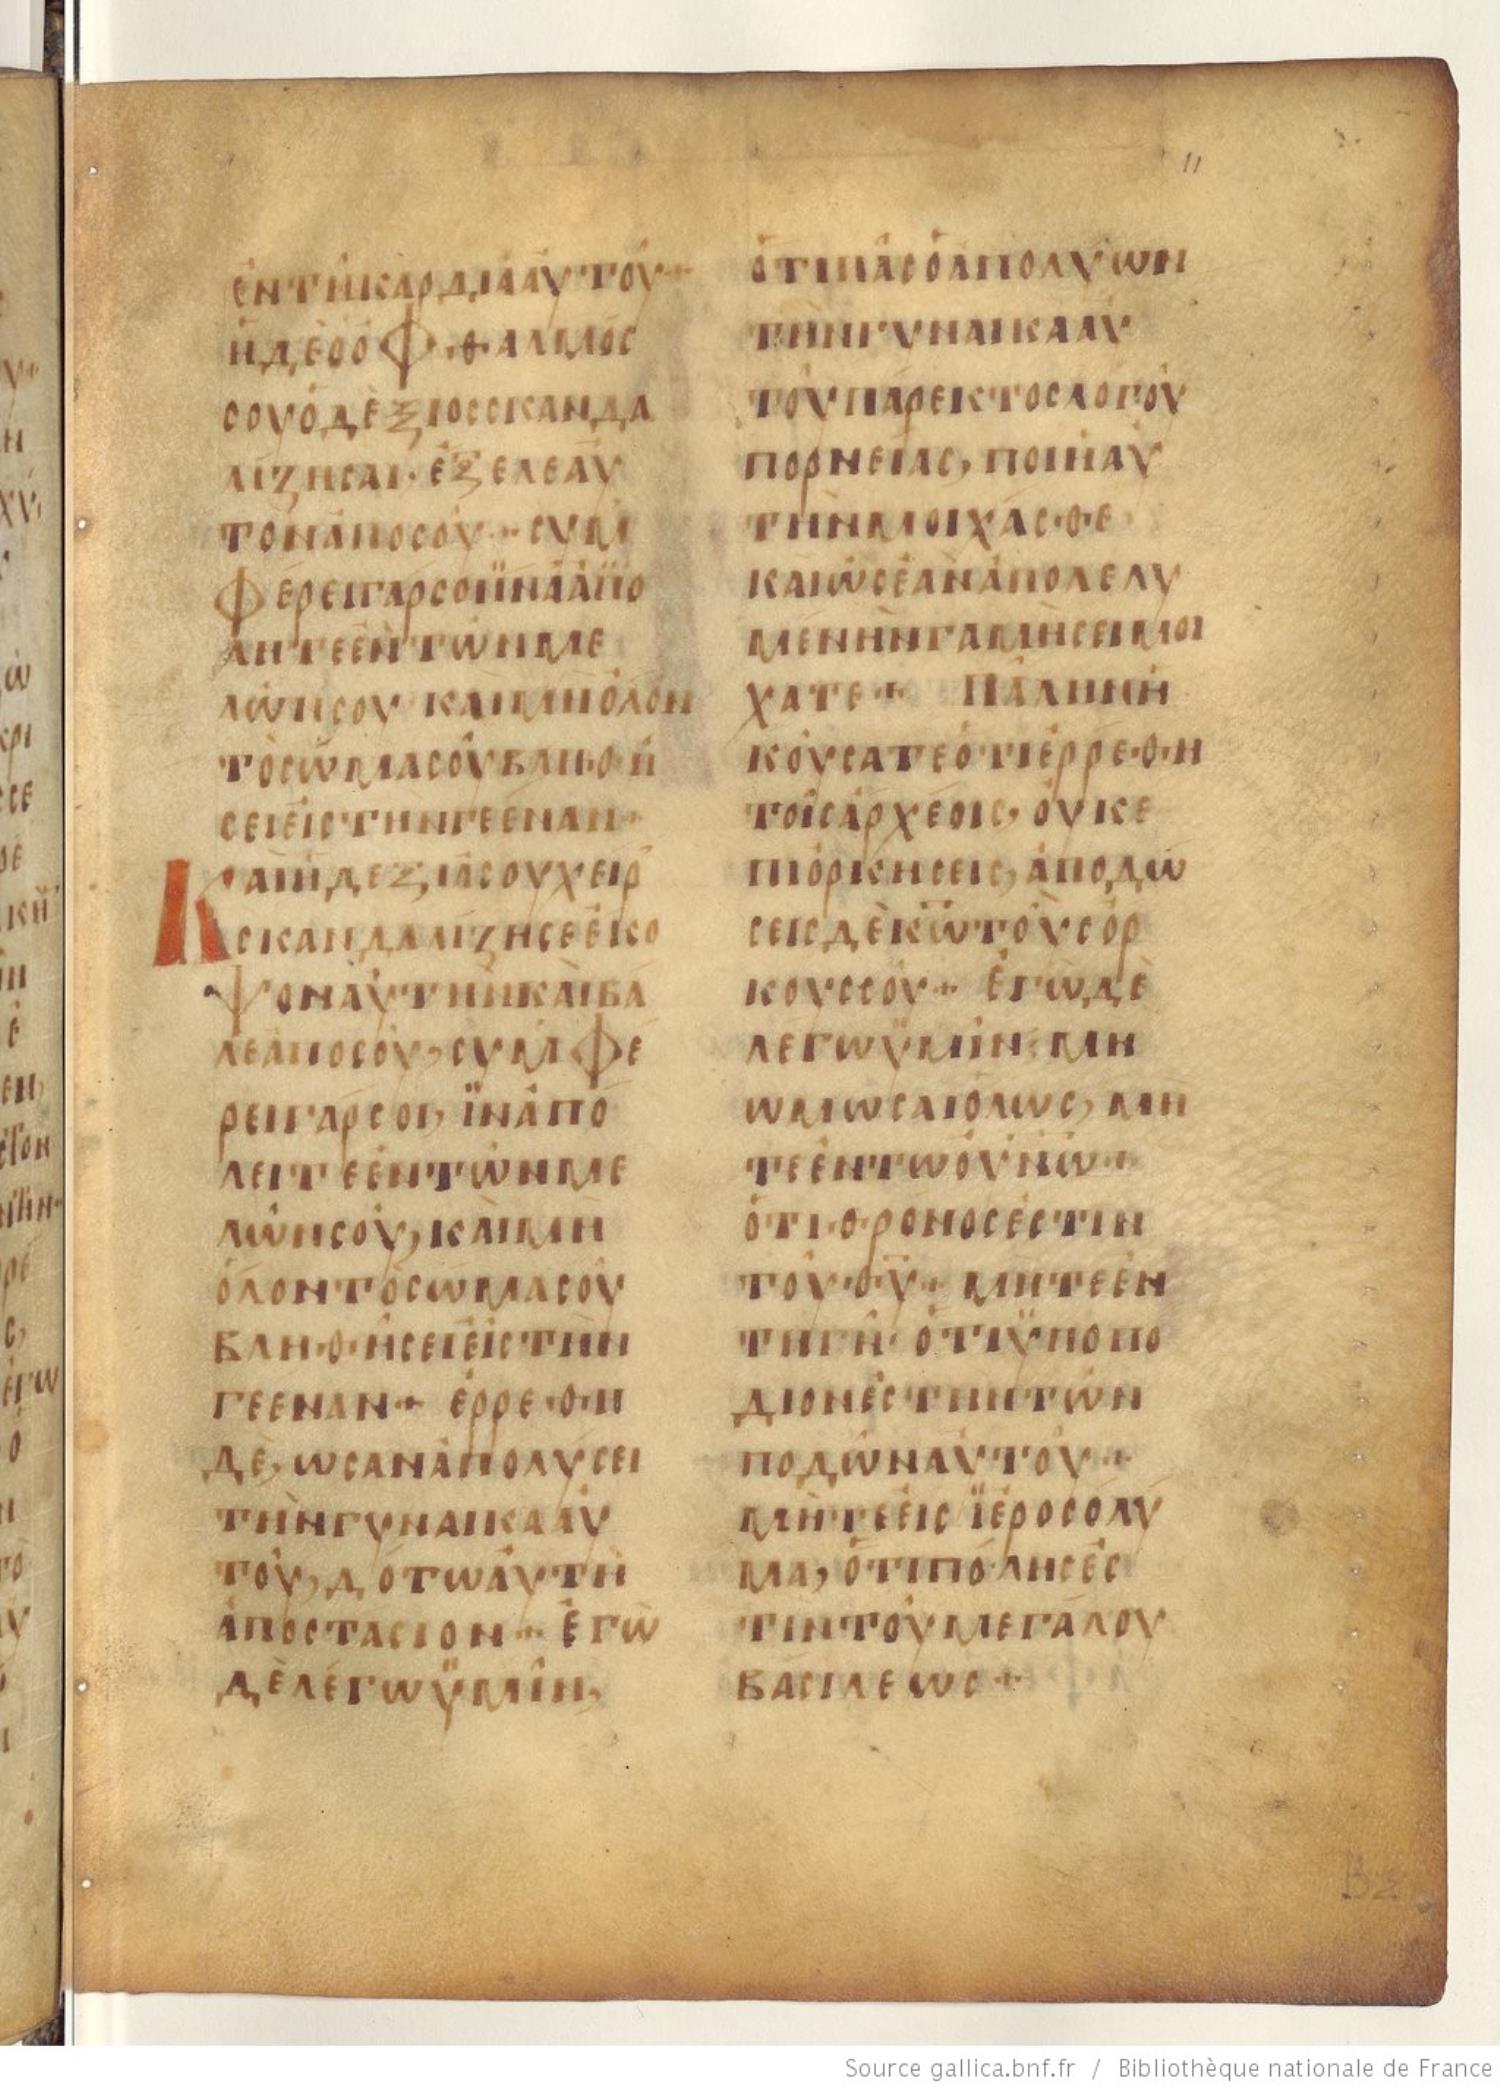 11
ἐν τῆ καρδία αὐτοῦ +
ἠ δὲ ὁ ὀφθαλμός
σου ὁ δεξιος σκανδα
λίζησαι · ἔξελε αὐ
τὸν ἀπὸ σοῦ + συμ
φέρει γάρ σοι ϊνα ἀπο
ληται ἐν τῶν με
λῶν σου καὶ μὴ ὅλον
τὸ σῶμα σοῦ βληθή
σει εἰς τὴν γεεναν +
Και ἡ δεξιά σου χειρ
σκανδαλίζη σε ἔκκο
ψον αὐτὴν καὶ βά
λε ἀπο σοῦ, συμφέ
ρει γάρ σοι, ϊνα ἀπό
λειτε ἐν τῶν με
λῶν σοῦ, καὶ μη
ὅλον τὸ σωμα σοῦ
βληθήσει εἰς τὴν
γεεναν + ἐρρεθη
δὲ, ως αν ἀπολύσει
τὴν γυναικα αὐ
τοῦ, δότω αὐτὴ
ἀποστασιον + ἐγὼ
δὲ λέγω ϋμῖν,
ὅτι πᾶς ὁ ἀπολύων
τὴν γυναικα αὐ
τοῦ παρεκτος λόγου
πορνείας, ποιῆ αὐ
τὴν μοιχάσθε
και ὡς ἐὰν ἀπολελυ
μενην γαμήσει μοι
χατε + Πάλιν ἠ
κούσατε ὅτι ἐρρεθη
τοῖς ἀρχέοις, οὐκ ἐ
πιόρκησεις, ἀποδώ
σεις δὲ κω τοὺς ὅρ
κους σοῦ + ἐγὼ δὲ
λέγω ϋμῖν μη
ωμωσαι ὅλως, μὴ
τε ἐν τω οὐνω +
ὅτι θρονος ἐστιν
τοῦ θυ + μητε ἐν
τη γῆ ὅτι ϋποπο
διον ἐστιν τῶν
ποδῶν αὐτοῦ +
μήτε εἰς ϊεροσολυ
μα, ὅτι πόλης ἐσ
τιν τοῦ μεγάλου
βασιλεως +
Source gallica.bnf.fr / Bibliothèque nationale de France